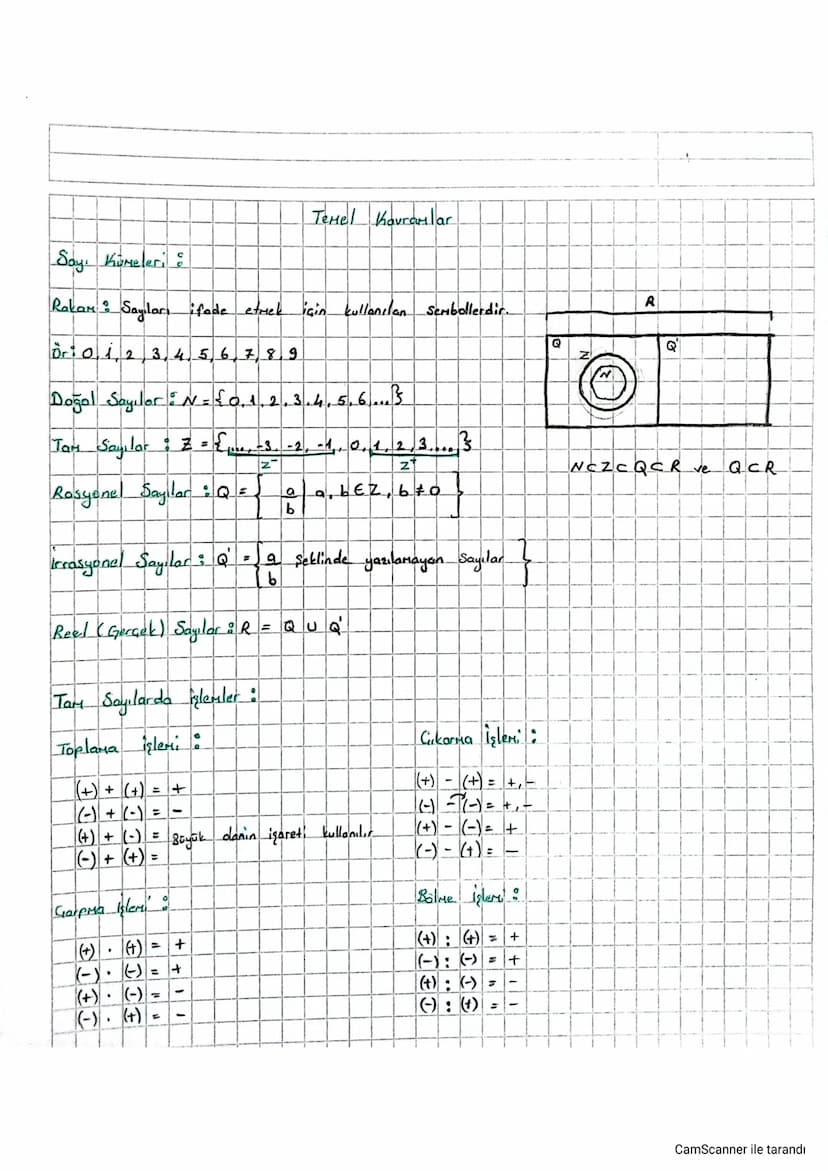 Temel Kavramlar
Sayı Kümeleri :
Rakam : Sayıları ifade etmek için kullanılan sembollerdir.
Ör: 0, 1, 2, 3, 4, 5, 6, 7, 8, 9
Doğal Sayılar : N = {0, 1, 2, 3, 4, 5, 6, ...}
Tam Sayılar : Z = {..., -3, -2, -1, 0, 1, 2, 3, ...}
Z⁻ Z⁺
Rasyonel Sayılar : Q = { a/b | a, b ∈ Z, b ≠ 0 }
İrrasyonel Sayılar : Q' = { a/b şeklinde yazılamayan sayılar }
Reel (Gerçek) Sayılar : R = Q ∪ Q'
R
Q Q'
Z
N
N ⊂ Z ⊂ Q ⊂ R ve Q ⊂ R
Tam Sayılarda İşlemler :
Toplama işlemi :
(+) + (+) = +
(-) + (-) = -
(+) + (-) = Büyük olanın işareti kullanılır
(-) + (+) =
Çıkarma İşlemi :
(+) - (+) = +, -
(-) - (-) = +, -
(+) - (-) = +
(-) - (+) = -
Çarpma İşlemi :
(+) . (+) = +
(-) . (-) = +
(+) . (-) = -
(-) . (+) = -
Bölme işlemi :
(+) : (+) = +
(-) : (-) = +
(+) : (-) = -
(-) : (+) = -
CamScanner ile tarandı